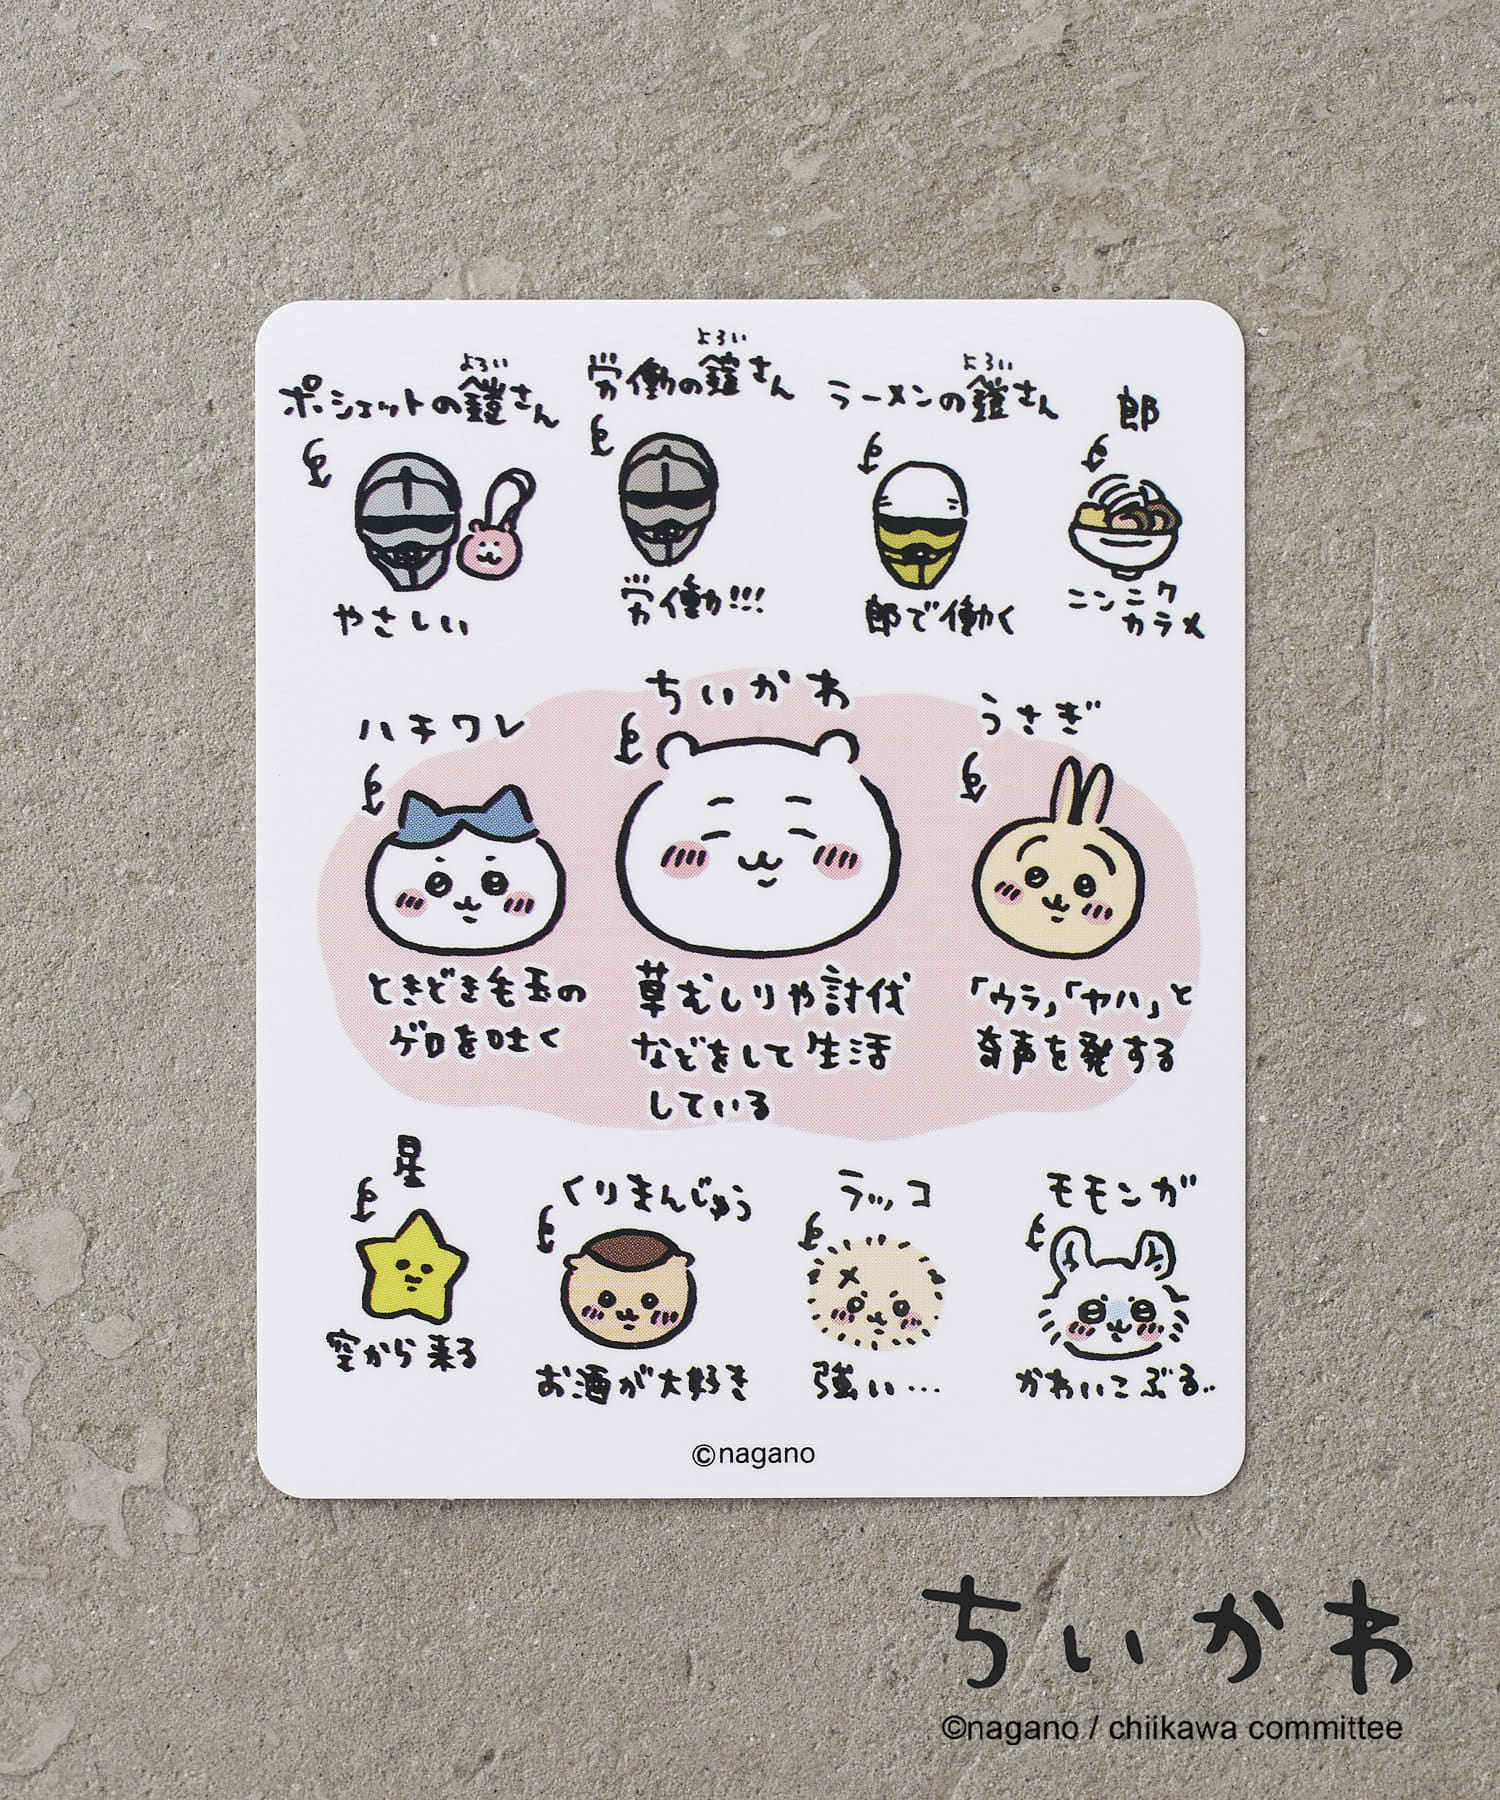 よろい
ポシェットの鎧さん
やさしい
よろい
労働の鎧さん
労働!!!
よろい
ラーメンの鎧さん
郎で働く
郎
ニンニク
カラメ
ハチワレ
ときどき毛玉の
ゲロを吐く
ちいかわ
草むしりや討伐
などをして生活
している
うさぎ
「ウラ」「ヤハ」と
奇声を発する
星
空から来る
くりまんじゅう
お酒が大好き
ラッコ
強い…
モモンガ
かわいこぶる..
©nagano
ちいかわ
©nagano / chiikawa committee